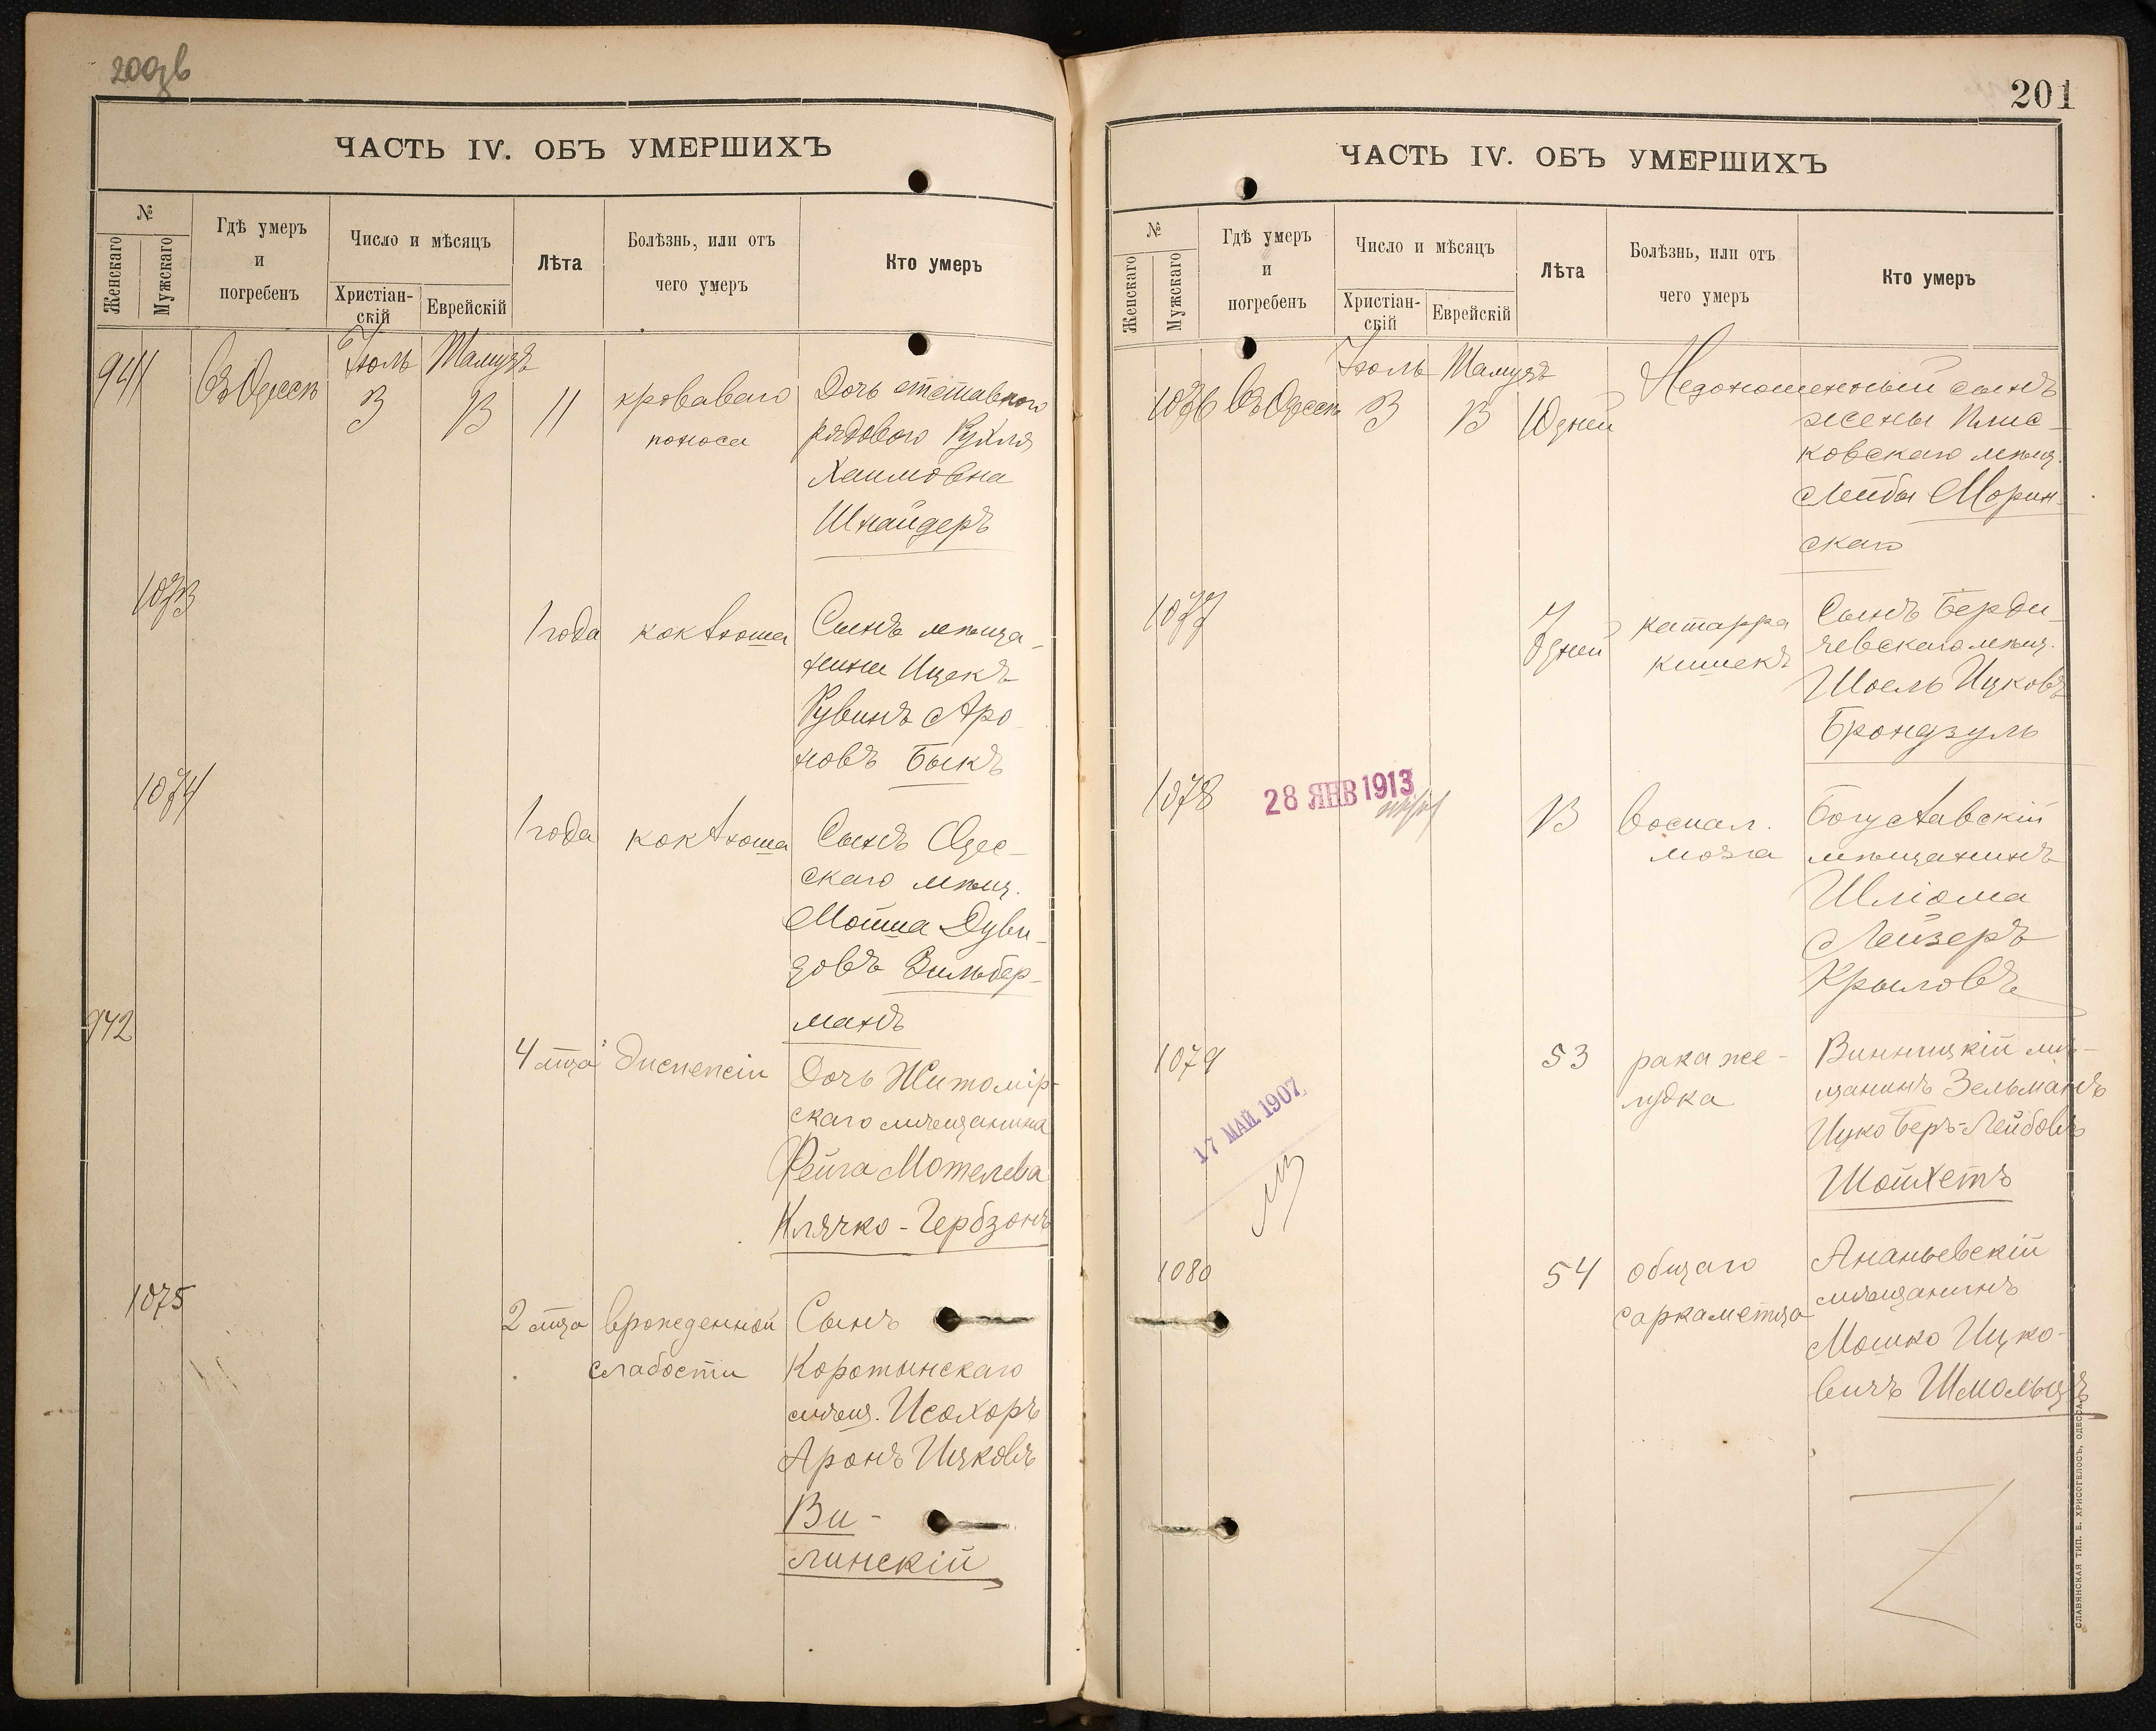 ЧАСТЬ IV. ОБЪ УМЕРШИХЪ
№
Женскаго
Мужскаго
Гдѣ умеръ
и
погребенъ
Число и мѣсяцъ
Христіан-
скій
Еврейскій
Лѣта
Болѣзнь, или отъ
чего умеръ
Кто умеръ
Іюль Тамузъ
941 Въ Одессѣ 3 13 11 кроваваго Дочь отставного
поноса рядового Рухля
Хаимовна
Шнайдеръ
1073
1 года коклюша Сынъ мѣща-
нина Ицекъ
Рувинъ Аро-
новъ Быкъ
1074
1 года коклюша Сынъ Одес-
скаго мѣщ.
Мошка Дуви-
довъ Зильбер-
манъ
942
4 мца диспепсіи Дочь Житомір-
скаго мѣщанина
Фейга Мотелева
Клячко-Гербзонъ
1075
2 мца врожденной Сынъ
слабости Коротынскаго
мѣщ. Исохоръ
Аронъ Ицковъ
Ви-
линскій
201
ЧАСТЬ IV. ОБЪ УМЕРШИХЪ
№
Женскаго
Мужскаго
Гдѣ умеръ
и
погребенъ
Число и мѣсяцъ
Христіан-
скій
Еврейскій
Лѣта
Болѣзнь, или отъ
чего умеръ
Кто умеръ
Іюль Тамузъ
1076 Въ Одессѣ 3 13 10 дней Недоношенный сынъ
жены Плис-
ковскаго мѣщ.
Лейбы Морин-
скаго
1077
дней катарра Сынъ Берди-
кишекъ чевскаго мѣщ.
Шоель Ицковъ
Брондзуль
1078 28 ЯНВ 1913 13 воспал. Богуславскій
мозга мѣщанинъ
Шліома
Лейзеръ
Крыловъ
1079 53 рака же- Винницкій мѣ-
лудка щанинъ Зельманъ
Ицко Беръ-Лейбовъ
Шойхетъ
17 МАЙ 1907
1080 54 общаго Ананьевскій
мѣщанинъ
Мошко Ицко-
вичъ Шмольцъ
СЛАВЯНСКАЯ ТИП. Е. ХРИСОГЕЛОСЪ, ОДЕССА.